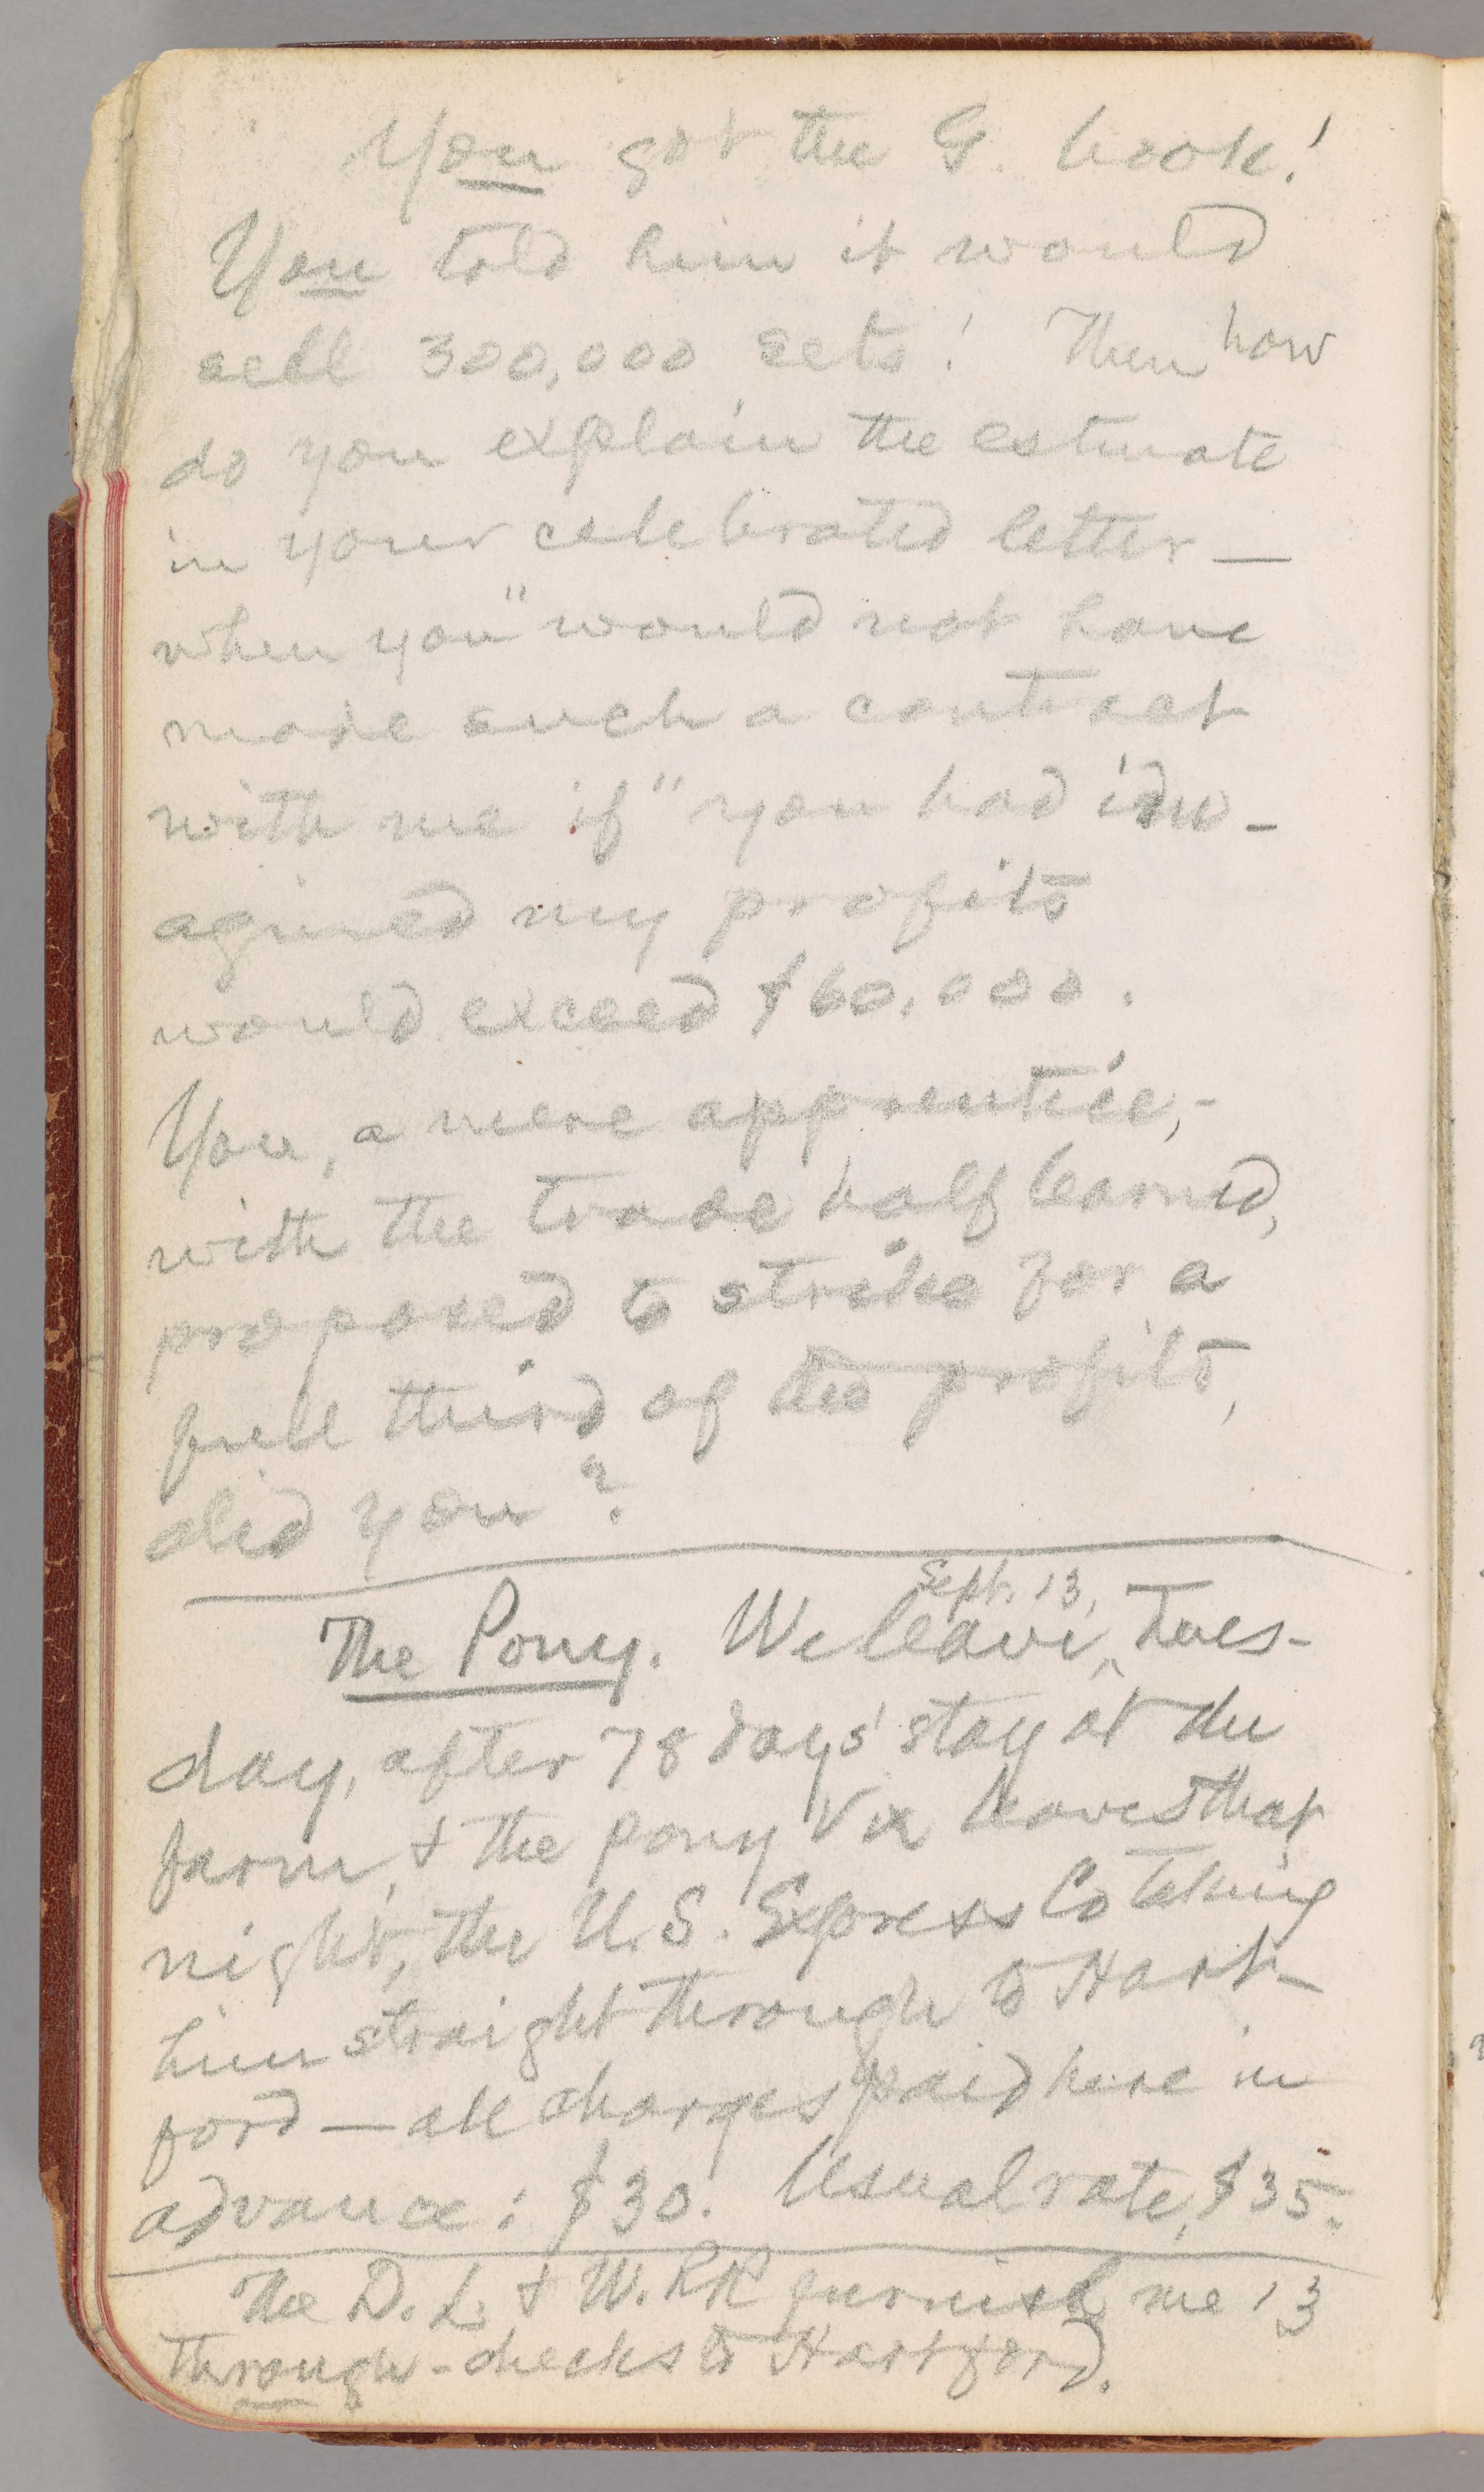 You got the G. book!
You told him it would
sell 300,000 sets! Then how
do you explain the estimate
in your celebrated letter—
when you "would not have
made such a contract
with me if" you had im-
agined my profits
would exceed $60,000.
You, a mere apprentice,-
with the trade half learned,
proposed to strike for a
full third of the profits,
did you?
Sept. 13,
The Pony. We leave, Tues-
day, after 78 days' stay at the
farm, & the pony Vix leaves that
night, the U.S. Express Co taking
him straight through to Hart-
ford—all charges paid here in
advance: $30. Usual rate, $35.
The D. L. & W. RR furnish me 13
through-checks to Hartford.